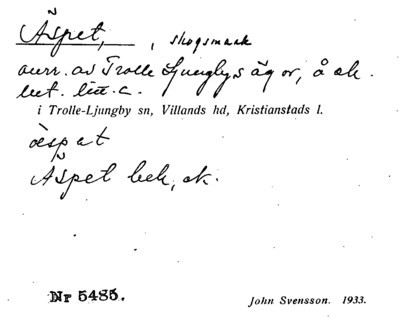 Äspet, , skogsmark
avrr. av Trolle Ljungbys ägor, å ek.
bet. litt. C.
i Trolle-Ljungby sn, Villands hd, Kristianstads l.
äspat
Äspet bek, ek.
Nr 5485.
John Svensson. 1933.